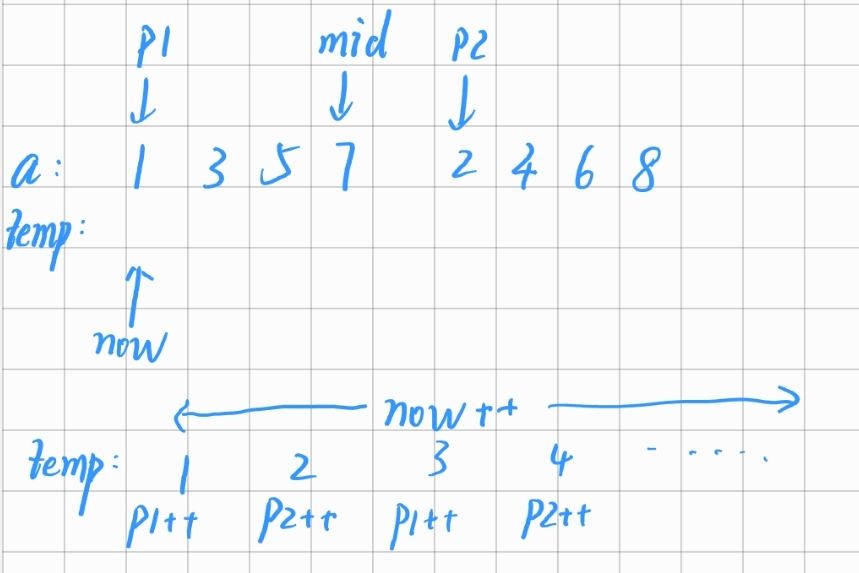 p1 mid p2
a: 1 3 5 7 2 4 6 8
temp:
now
now++
temp: 1 2 3 4 ......
p1++ p2++ p1++ p2++